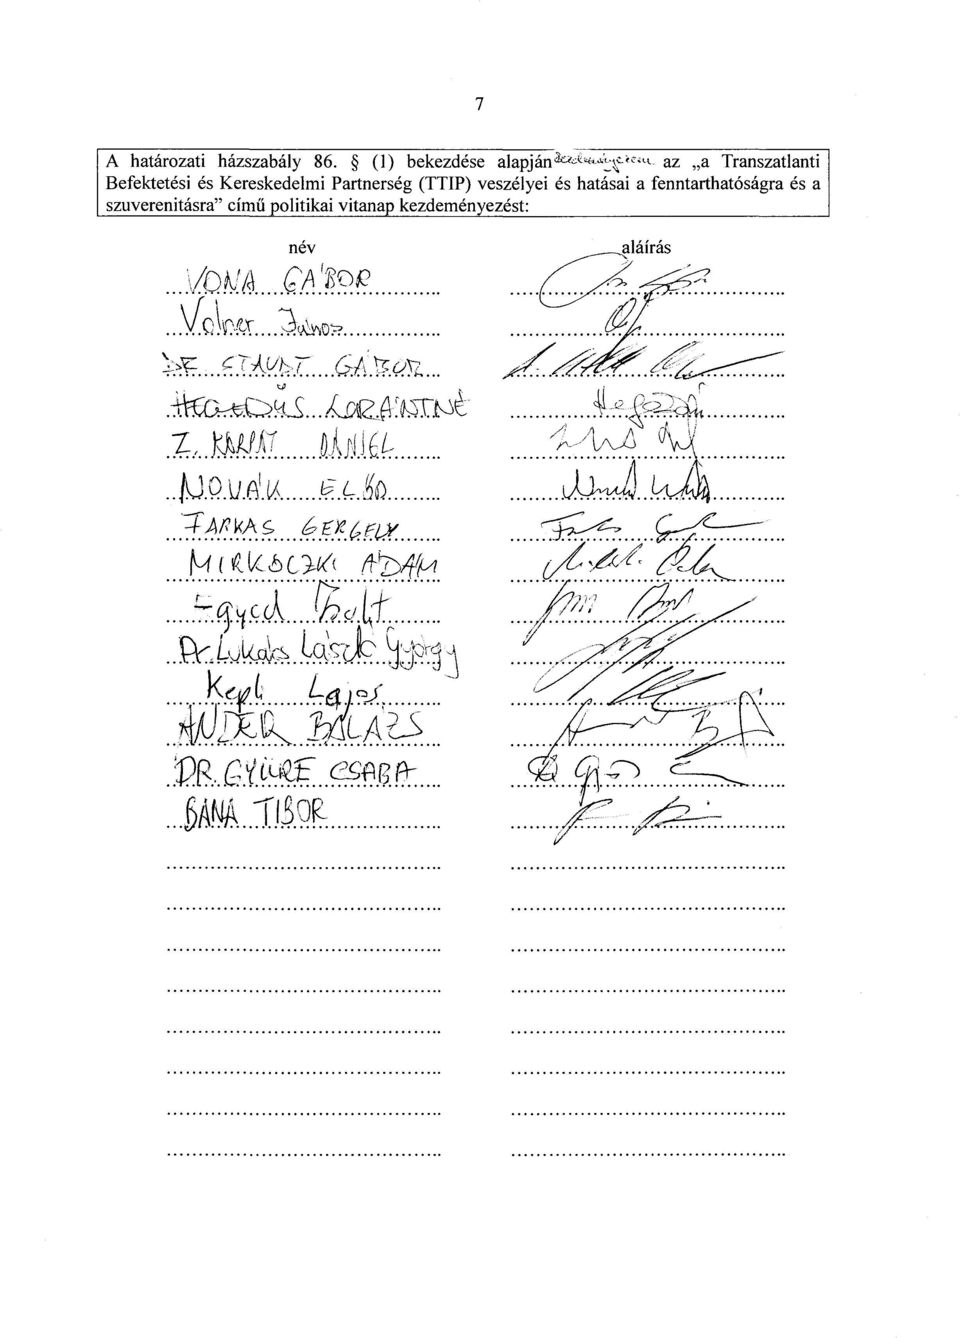 7
A határozati házszabály 86. § (1) bekezdése alapján kezdeményezem az „a Transzatlanti
Befektetési és Kereskedelmi Partnerség (TTIP) veszélyei és hatásai a fenntarthatóságra és a
szuverenitásra” című politikai vitanap kezdeményezést:
név aláírás
VONA GÁBOR
Volner János
DE STAUDT GÁBOR
HEGEDŰS LORÁNTNÉ
Z. KÁRPÁT DÁNIEL
NOVÁK ELŐD
FARKAS GERGELY
MIRKÓCZKI ÁDÁM
Egyed Zsolt
Dr. Lukács László György
Kepli Lajos
ANDER BALÁZS
DR. GYÜRE CSABA
BANA TIBOR